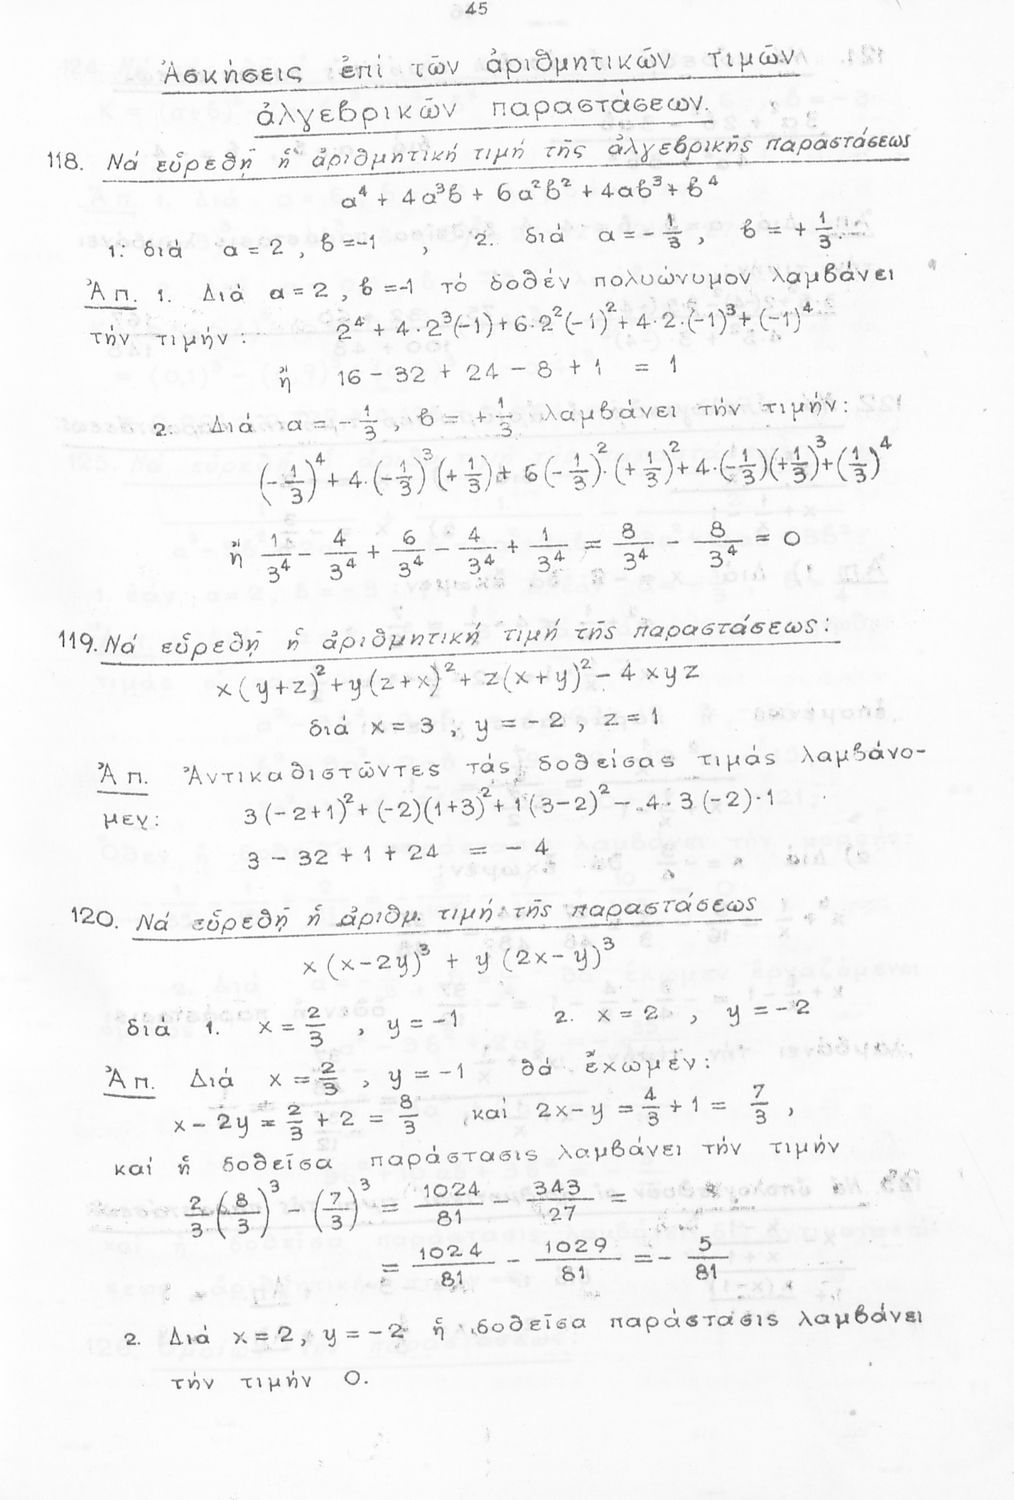 45
Ἀσκήσεις ἐπί τῶν ἀριθμητικῶν τιμῶν
ἀλγεβρικῶν παραστάσεων.
118. Νά εὑρεθῇ ἡ ἀριθμητική τιμή τῆς ἀλγεβρικῆς παραστάσεως
α⁴ + 4α³β + 6α²β² + 4αβ³ + β⁴
1. διά α = 2 , β = -1 , 2. διά α = - 1/3 , β = + 1/3.
Ἀπ. 1. Διά α = 2 , β = -1 τό δοθέν πολυώνυμον λαμβάνει
τήν τιμήν: 2⁴ + 4·2³(-1) + 6·2²(-1)² + 4·2·(-1)³ + (-1)⁴
ἤ 16 - 32 + 24 - 8 + 1 = 1
2. Διά α = - 1/3 , β = + 1/3 λαμβάνει τήν τιμήν:
(-1/3)⁴ + 4·(-1/3)³(+1/3) + 6(-1/3)²·(+1/3)² + 4·(-1/3)(+1/3)³ + (1/3)⁴
ἤ 1/3⁴ - 4/3⁴ + 6/3⁴ - 4/3⁴ + 1/3⁴ = 8/3⁴ - 8/3⁴ = 0
119. Νά εὑρεθῇ ἡ ἀριθμητική τιμή τῆς παραστάσεως:
x(y+z)² + y(z+x)² + z(x+y)² - 4xyz
διά x = 3 , y = -2 , z = 1
Ἀπ. Ἀντικαθιστῶντες τάς δοθείσας τιμάς λαμβάνο-
μεν: 3(-2+1)² + (-2)(1+3)² + 1(3-2)² - 4·3(-2)·1
3 - 32 + 1 + 24 = - 4
120. Νά εὑρεθῇ ἡ ἀριθμ. τιμή τῆς παραστάσεως
x(x-2y)³ + y(2x-y)³
διά 1. x = 2/3 , y = -1 2. x = 2 , y = -2
Ἀπ. Διά x = 2/3 , y = -1 θά ἔχωμεν:
x - 2y = 2/3 + 2 = 8/3 καί 2x - y = 4/3 + 1 = 7/3 ,
καί ἡ δοθεῖσα παράστασις λαμβάνει τήν τιμήν
2/3 (8/3)³ - (7/3)³ = 1024/81 - 343/27 =
= 1024/81 - 1029/81 = - 5/81
2. Διά x = 2 , y = -2 ἡ δοθεῖσα παράστασις λαμβάνει
τήν τιμήν 0.